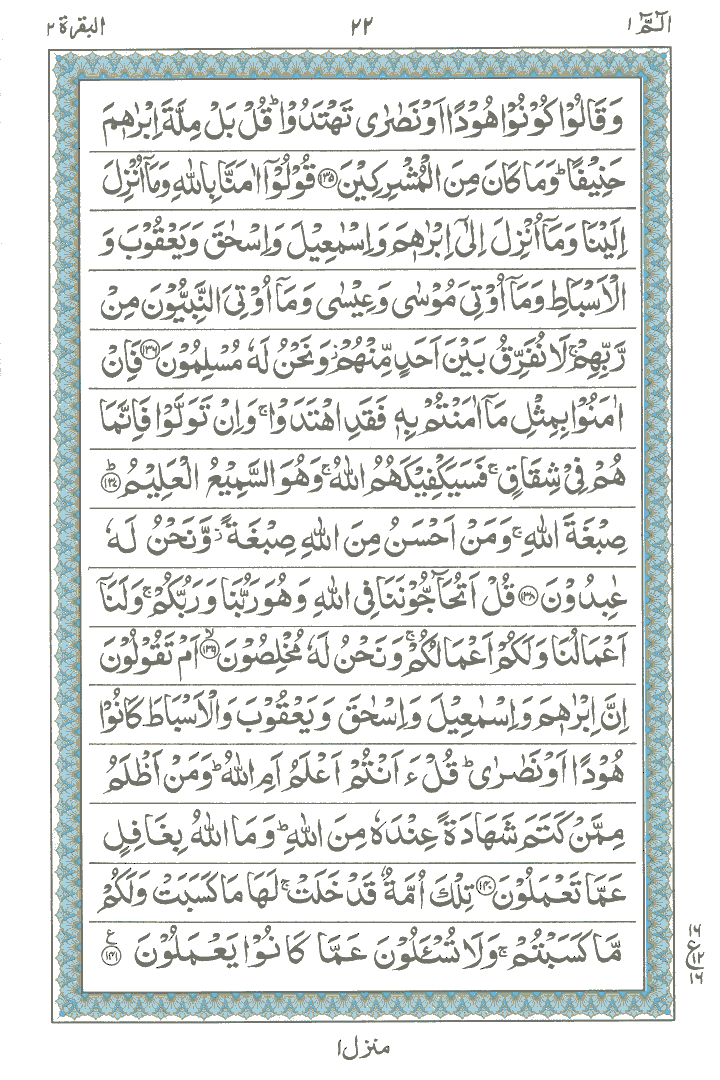 الٓمّٓ ١ ٢٢ البقرة ٢
وَقَالُوْا كُوْنُوْا هُوْدًا اَوْ نَصٰرٰى تَهْتَدُوْا ؕ قُلْ بَلْ مِلَّةَ اِبْرٰهٖمَ
حَنِيْفًا ؕ وَمَا كَانَ مِنَ الْمُشْرِكِيْنَ ﴿۱۳۵﴾ قُوْلُوْۤا اٰمَنَّا بِاللّٰهِ وَمَاۤ اُنْزِلَ
اِلَيْنَا وَمَاۤ اُنْزِلَ اِلٰۤى اِبْرٰهٖمَ وَاِسْمٰعِيْلَ وَاِسْحٰقَ وَيَعْقُوْبَ وَ
الْاَسْبَاطِ وَمَاۤ اُوْتِيَ مُوْسٰى وَعِيْسٰى وَمَاۤ اُوْتِيَ النَّبِيُّوْنَ مِنْ
رَّبِّهِمْ ۚ لَا نُفَرِّقُ بَيْنَ اَحَدٍ مِّنْهُمْ ۖ وَنَحْنُ لَهٗ مُسْلِمُوْنَ ﴿۱۳۶﴾ فَاِنْ
اٰمَنُوْا بِمِثْلِ مَاۤ اٰمَنْتُمْ بِهٖ فَقَدِ اهْتَدَوْا ۚ وَاِنْ تَوَلَّوْا فَاِنَّمَا
هُمْ فِيْ شِقَاقٍ ۚ فَسَيَكْفِيْكَهُمُ اللّٰهُ ۚ وَهُوَ السَّمِيْعُ الْعَلِيْمُ ؕ﴿۱۳۷﴾
صِبْغَةَ اللّٰهِ ۚ وَمَنْ اَحْسَنُ مِنَ اللّٰهِ صِبْغَةً ۖ وَّنَحْنُ لَهٗ
عٰبِدُوْنَ ﴿۱۳۸﴾ قُلْ اَتُحَآجُّوْنَنَا فِي اللّٰهِ وَهُوَ رَبُّنَا وَرَبُّكُمْ ۚ وَلَنَاۤ
اَعْمَالُنَا وَلَكُمْ اَعْمَالُكُمْ ۚ وَنَحْنُ لَهٗ مُخْلِصُوْنَ ۙ﴿۱۳۹﴾ اَمْ تَقُوْلُوْنَ
اِنَّ اِبْرٰهٖمَ وَاِسْمٰعِيْلَ وَاِسْحٰقَ وَيَعْقُوْبَ وَالْاَسْبَاطَ كَانُوْا
هُوْدًا اَوْ نَصٰرٰى ؕ قُلْ ءَاَنْتُمْ اَعْلَمُ اَمِ اللّٰهُ ؕ وَمَنْ اَظْلَمُ
مِمَّنْ كَتَمَ شَهَادَةً عِنْدَهٗ مِنَ اللّٰهِ ؕ وَمَا اللّٰهُ بِغَافِلٍ
عَمَّا تَعْمَلُوْنَ ﴿۱۴۰﴾ تِلْكَ اُمَّةٌ قَدْ خَلَتْ ۚ لَهَا مَا كَسَبَتْ وَلَكُمْ
مَّا كَسَبْتُمْ ۚ وَلَا تُسْـَٔلُوْنَ عَمَّا كَانُوْا يَعْمَلُوْنَ ﴿۱۴۱﴾ ع
١٦
ع ١٢
١٦
منزل ١